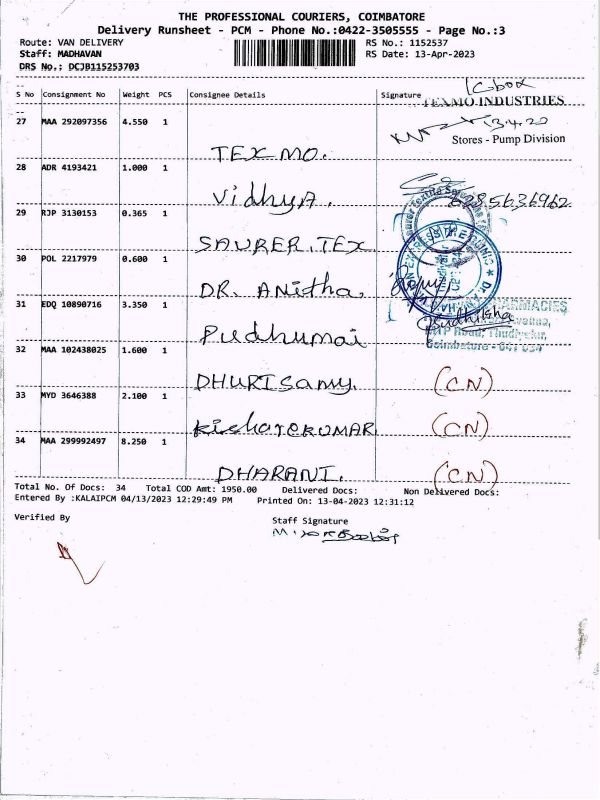 THE PROFESSIONAL COURIERS, COIMBATORE
Delivery Runsheet - PCM - Phone No.:0422-3505555 - Page No.:3
Route: VAN DELIVERY RS No.: 1152537
Staff: MADHAVAN RS Date: 13-Apr-2023
DRS No.: DCJB115253703
S No Consignment No Weight PCS Consignee Details Signature
TEXMO INDUSTRIES
27 MAA 292097356 4.550 1
Stores - Pump Division
TEXMO.
28 ADR 4193421 1.000 1
Vidhya.
29 RJP 3130153 0.365 1
SAURER.TEX
30 POL 2217979 0.600 1
DR. Anitha.
31 EDQ 10890716 3.350 1
Pudhumai
32 MAA 102438025 1.600 1
Coimbatore - 641 034
DHURISamy. (CN)
33 MYD 3646388 2.100 1
KishoreKUMAR (CN)
34 MAA 299992497 8.250 1
DHARANI. (CN)
Total No. Of Docs: 34 Total COD Amt: 1950.00 Delivered Docs: Non Delivered Docs:
Entered By :KALAIPCM 04/13/2023 12:29:49 PM Printed On: 13-04-2023 12:31:12
Verified By Staff Signature